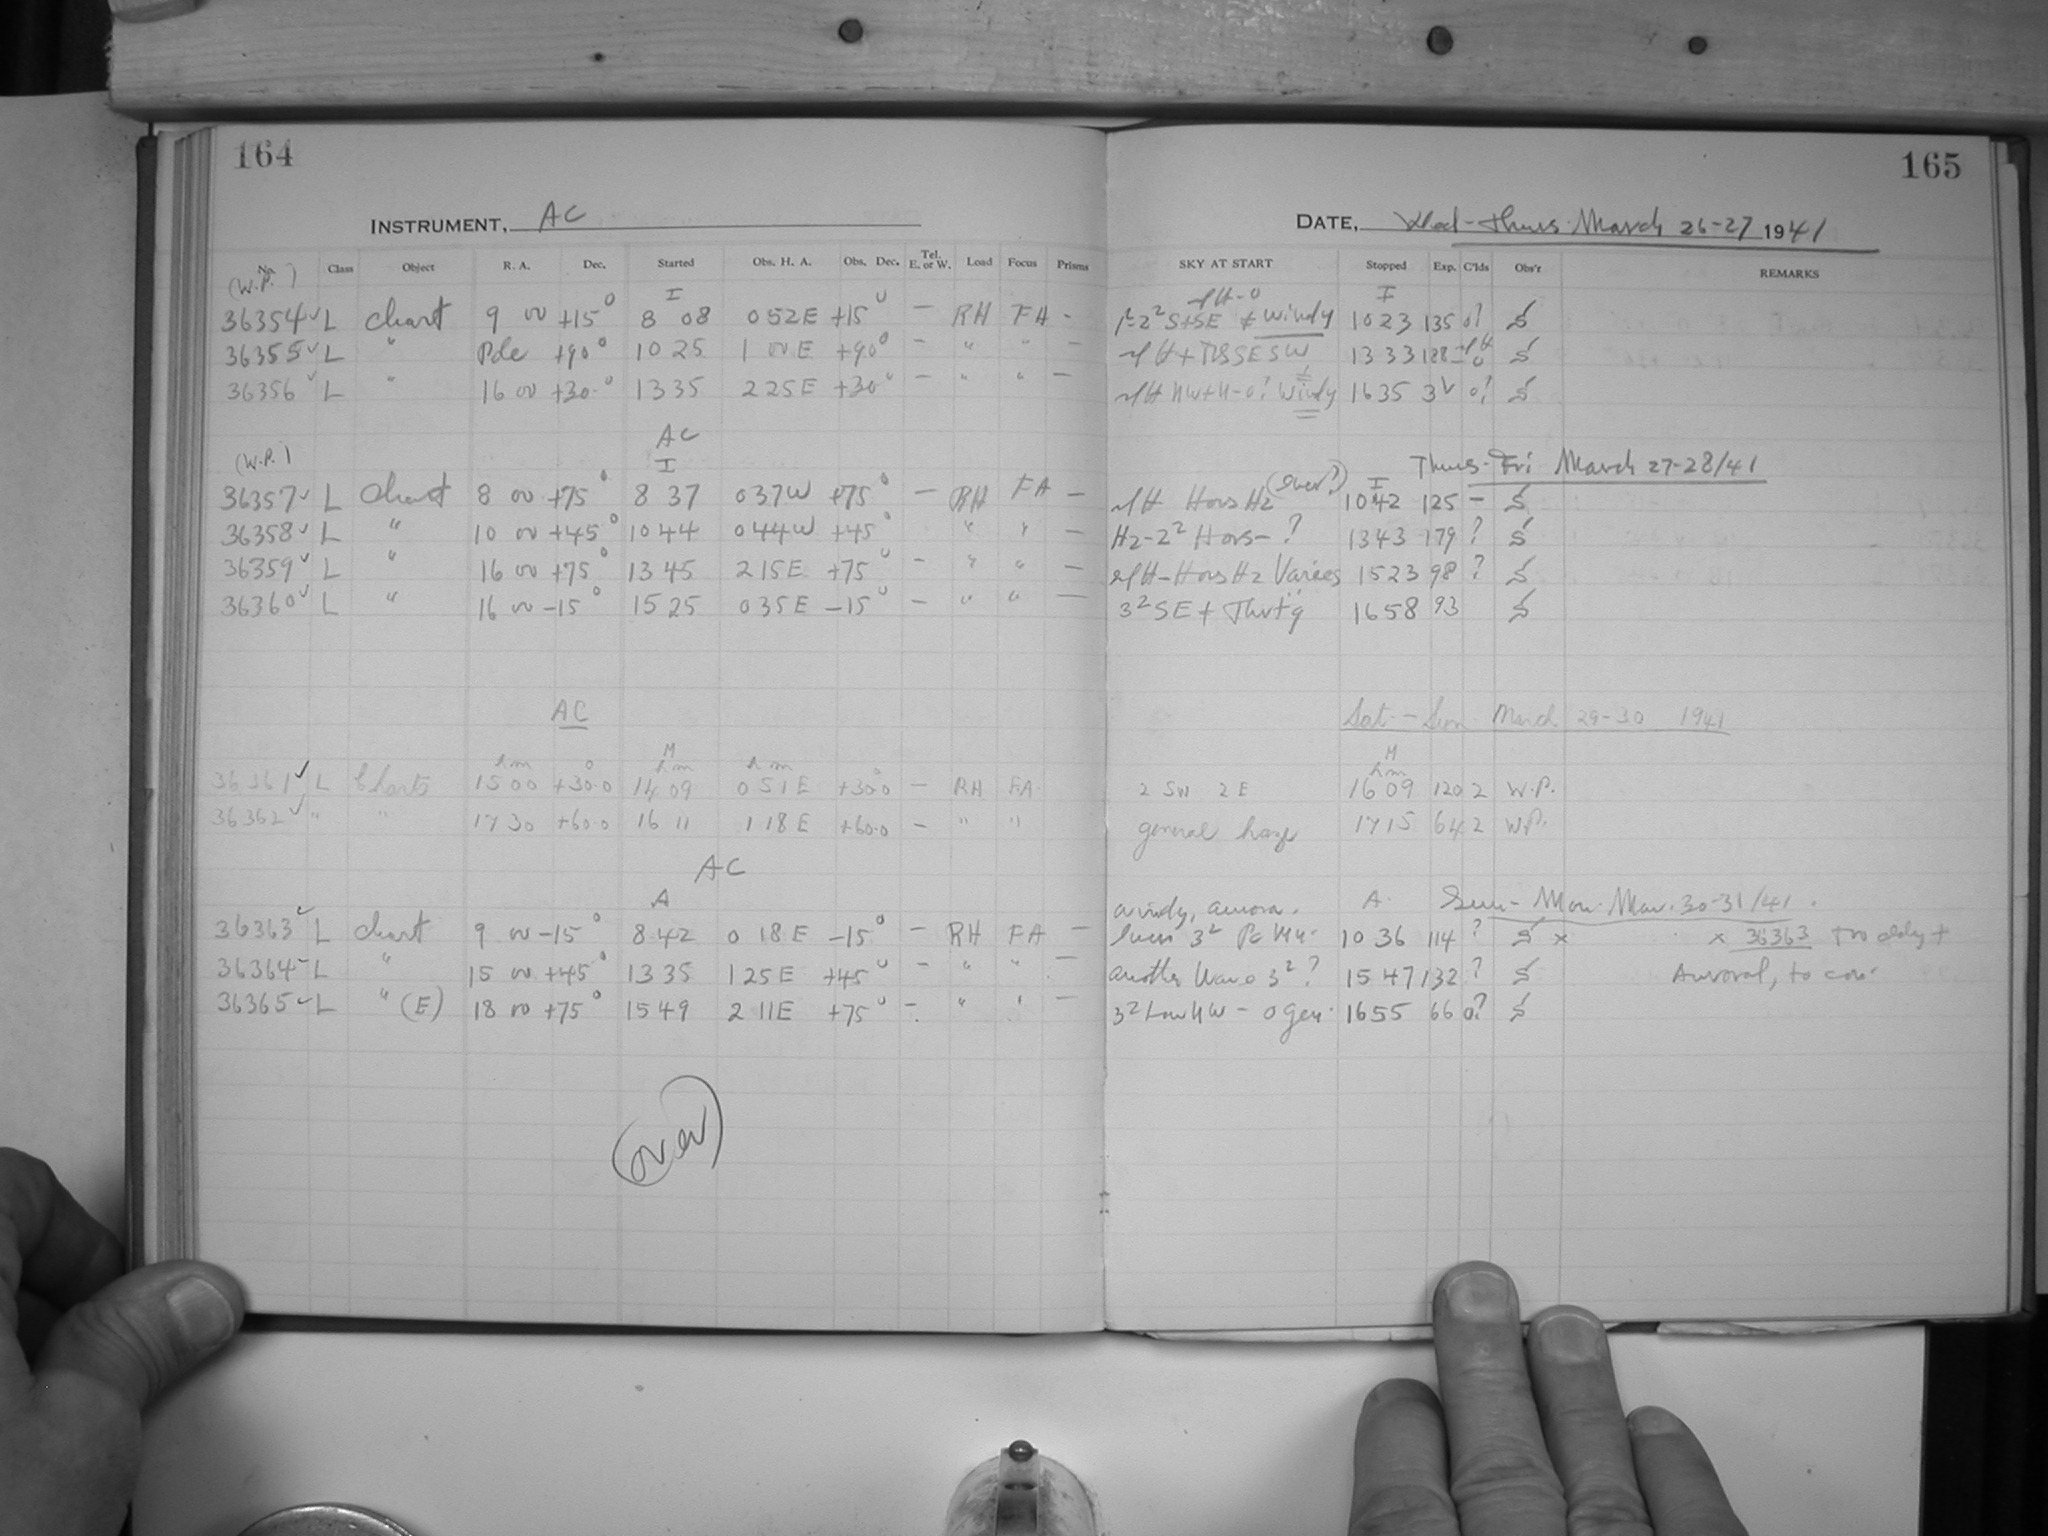 164
INSTRUMENT, AC
No. Class Object R. A. Dec. Started Obs. H. A. Obs. Dec. Tel. E. or W. Load Focus Prisms
(W.P.) I
36354 ✓ L Chart 9 00 +15° 8 08 0 52 E +15° – RH FA –
36355 ✓ L " Pole +90° 10 25 1 00 E +90° – " " –
36356 ✓ L " 16 00 +30° 13 35 2 25 E +30° – " " –
AC
(W.P.) I
36357 ✓ L Chart 8 00 +75° 8 37 0 37 W +75° – RH FA –
36358 ✓ L " 10 00 +45° 10 44 0 44 W +45° " " –
36359 ✓ L " 16 00 +75° 13 45 2 15 E +75° – " " –
36360 ✓ L " 16 00 –15° 15 25 0 35 E –15° – " " –
AC
h m ° M h m h m °
36361 ✓ L Charts 15 00 +30.0 14 09 0 51 E +30.0 – RH FA
36362 ✓ " " 17 30 +60.0 16 11 1 18 E +60.0 – " "
AC
A
36363 ✓ L chart 9 00 –15° 8 42 0 18 E –15° – RH FA –
36364 ✓ L " 15 00 +45° 13 35 1 25 E +45° – " " –
36365 ✓ L " (E) 18 00 +75° 15 49 2 11 E +75° – " " –
(over)
165
DATE, Wed-Thurs March 26-27 1941
SKY AT START Stopped Exp. C'lds Obs'r REMARKS
I
S+SE + Windy 10 23 135 0?
SSE SW 13 33 188
NW+N-0? Windy 16 35 0?
Thurs-Fri March 27-28/41
(over?) I
Hors H2 10 42 125 –
H2-2² Hors-? 13 43 179 ?
Hors H2 Varies 15 23 98 ?
3² SE + 16 58 93
Sat.-Sun. March 29-30 1941
M
h m
2 SW 2 E 16 09 120 2 W.P.
general haze 17 15 64 2 W.P.
windy, aurora. A. Sun-Mon. Mar. 30-31/41.
3² 10 36 114 ? × × 36363 Too
another 3²? 15 47 132 ? Auroral, to
3² Low NW – 0 gen. 16 55 66 0?